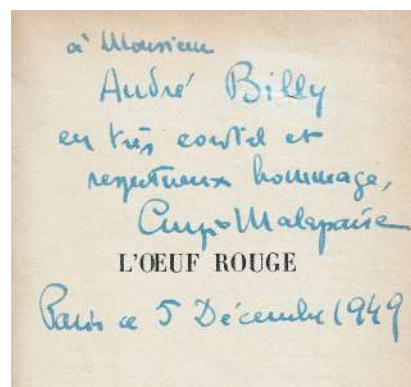 à Monsieur
André Billy
en très cordial et
respectueux hommage,
Curzio Malaparte
L'ŒUF ROUGE
Paris ce 5 Décembre 1949